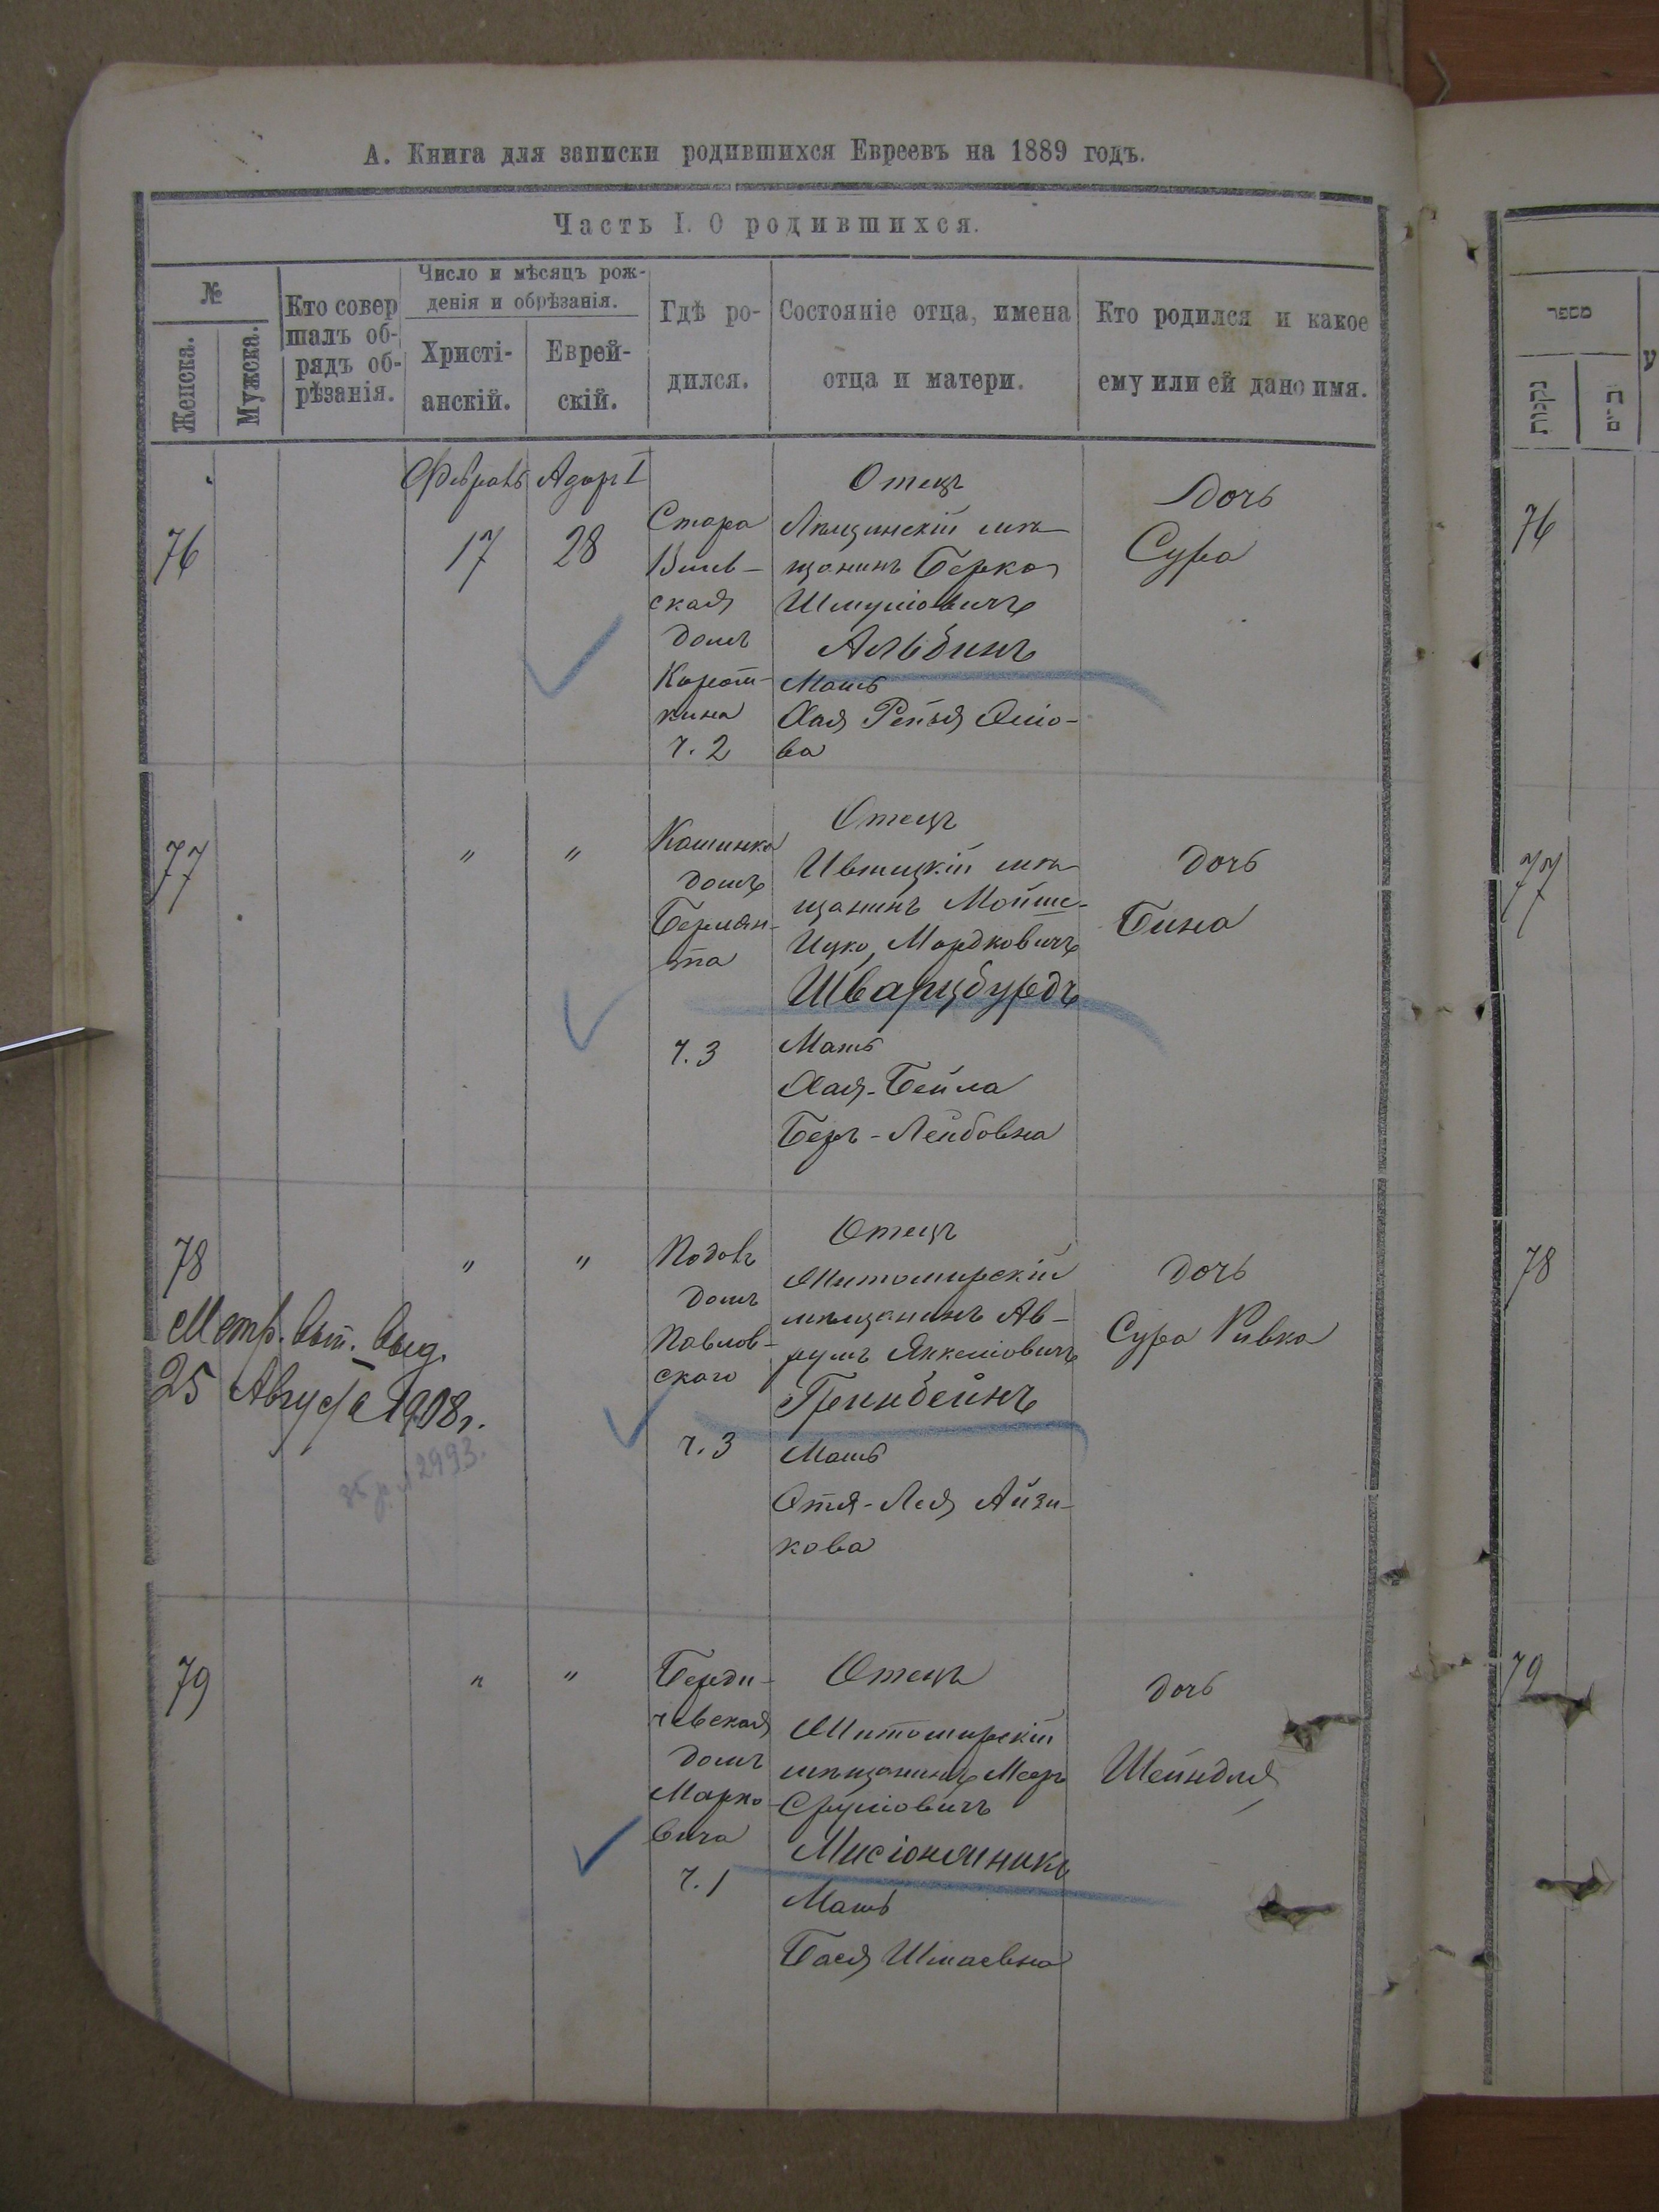 А. Книга для записки родившихся Евреевъ на 1889 годъ.
Часть I. О родившихся.
№
Женска.
Мужска.
Кто совер
шалъ об-
рядъ об-
рѣзанія.
Число и мѣсяцъ рож-
денія и обрѣзанія.
Христі-
анскій.
Еврей-
скій.
Гдѣ ро-
дился.
Состояніе отца, имена
отца и матери.
Кто родился и какое
ему или ей дано имя.
מספר
נקבות
76
Февраль
17
Адаръ I
28
Стара
ская
домъ
кина
ч. 2
Отецъ
мѣ
щанинъ Берко
Шмуліовичъ
Альбинъ
Мать
Хая
ва
Дочь
Сура
76
77
"
"
домъ
ч. 3
Отецъ
мѣ
щанинъ Мойше-
Ицко Мордковичъ
Шварцбурдъ
Мать
Хая-Бейла
Беръ-Лейбовна
дочь
Бина
77
78
Метр. вып. выд.
25 Августа 1908 г.
2993.
"
"
домъ
Павлов-
скаго
ч. 3
Отецъ
Житомирскій
мѣщанинъ Ав-
румъ Янкеліовичъ
Гринбейнъ
Мать
Лея Айзи-
кова
дочь
Сура Ривка
78
79
"
"
Берди-
чевская
домъ
Марко-
вича
ч. 1
Отецъ
Житомирскій
мѣщанинъ Мееръ
Сруліовичъ
Мать
Бася Шмаевна
дочь
Шейндля
79